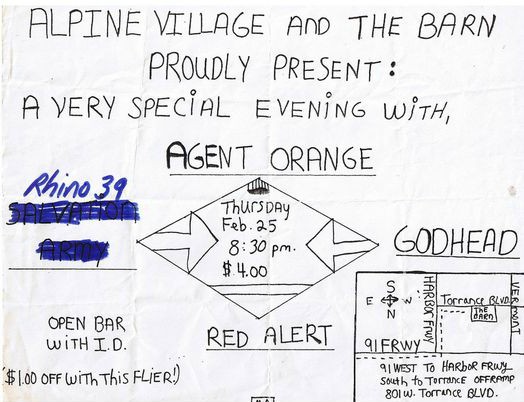 ALPINE VILLAGE AND THE BARN
PROUDLY PRESENT:
A VERY SPECIAL EVENING WITH,
AGENT ORANGE
Rhino 39
SALVATION
ARMY
Thursday
Feb. 25
8:30 pm.
$4.00
GODHEAD
RED ALERT
OPEN BAR
WITH I.D.
($1.00 OFF WITH THIS FLIER!)
S
E W
N
HARBOR FRWY
Torrance BLVD.
VERMONT
THE BARN
91 FRWY
91 WEST TO HARBOR FRWY
South to TORRANCE OFFRAMP
801 W. TORRANCE BLVD.